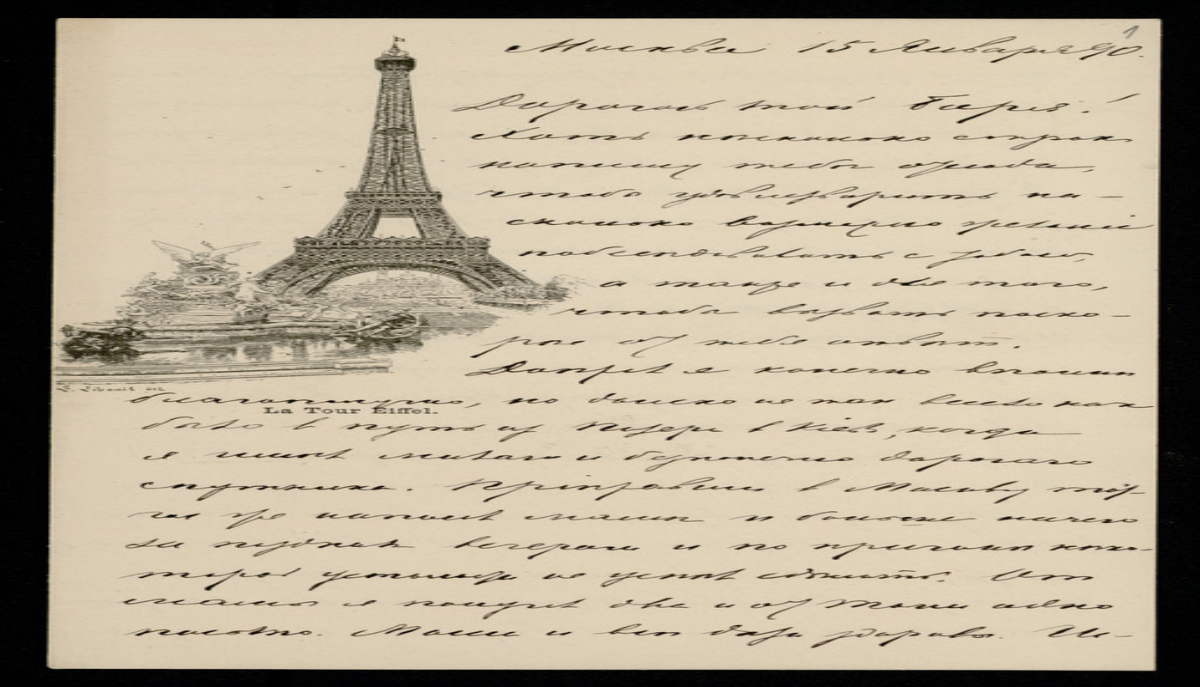 1
Москва 15 Января 90.
Дорогой мой Боря!
Хоть несколько строк
напишу тебе отсюда,
чтобы удовлетворить на-
сколько возможно желание
побеседовать с тобою,
а также и для того,
чтобы вызвать поско-
рее от тебя ответ.
Доехал я конечно вполне
благополучно, но далеко не так весело как
было в путь из Питера в Кіевъ, когда
я имел милаго и безконечно дорогаго
спутника. в Москву тот-
час же написал маме и больше ничего
за поздним вечером и по причине неко-
торой усталости не успел сделать. От
мамы я получил два и от Тани одно
письмо. Мама и все дома здоровы. Из-
La Tour Eiffel.